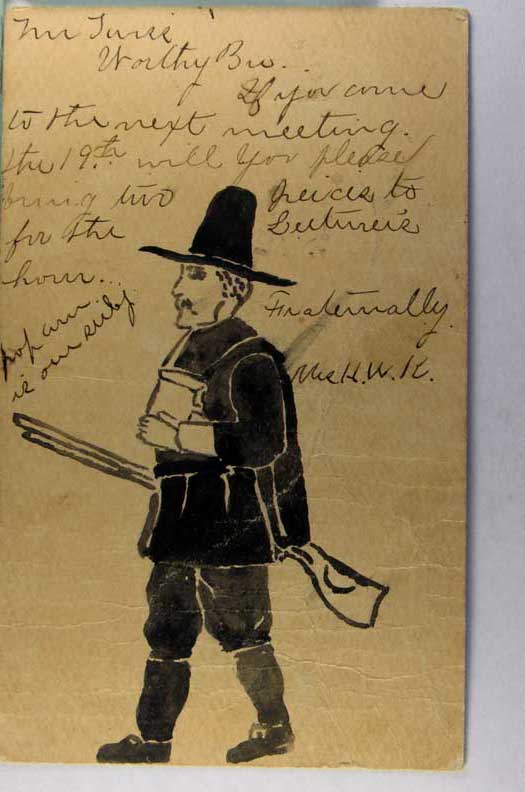 Worthy Bro..
If you come
to the next meeting.
the 19th will you please
bring two peices to
for the Lecturer's
hour...
is our subj
Fraternally
Mrs H. W. K.